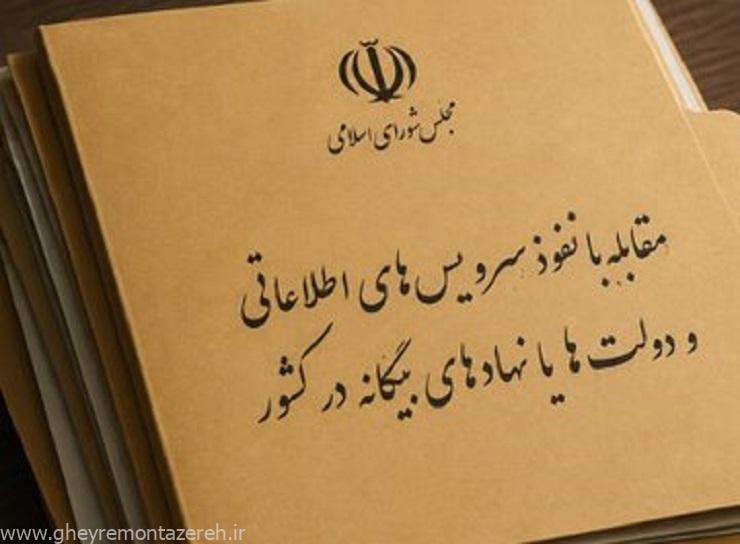 مجلس شورای اسلامی
مقابله با نفوذ سرویس های اطلاعاتی
و دولت ها یا نهادهای بیگانه در کشور
www.gheyremontazereh.ir